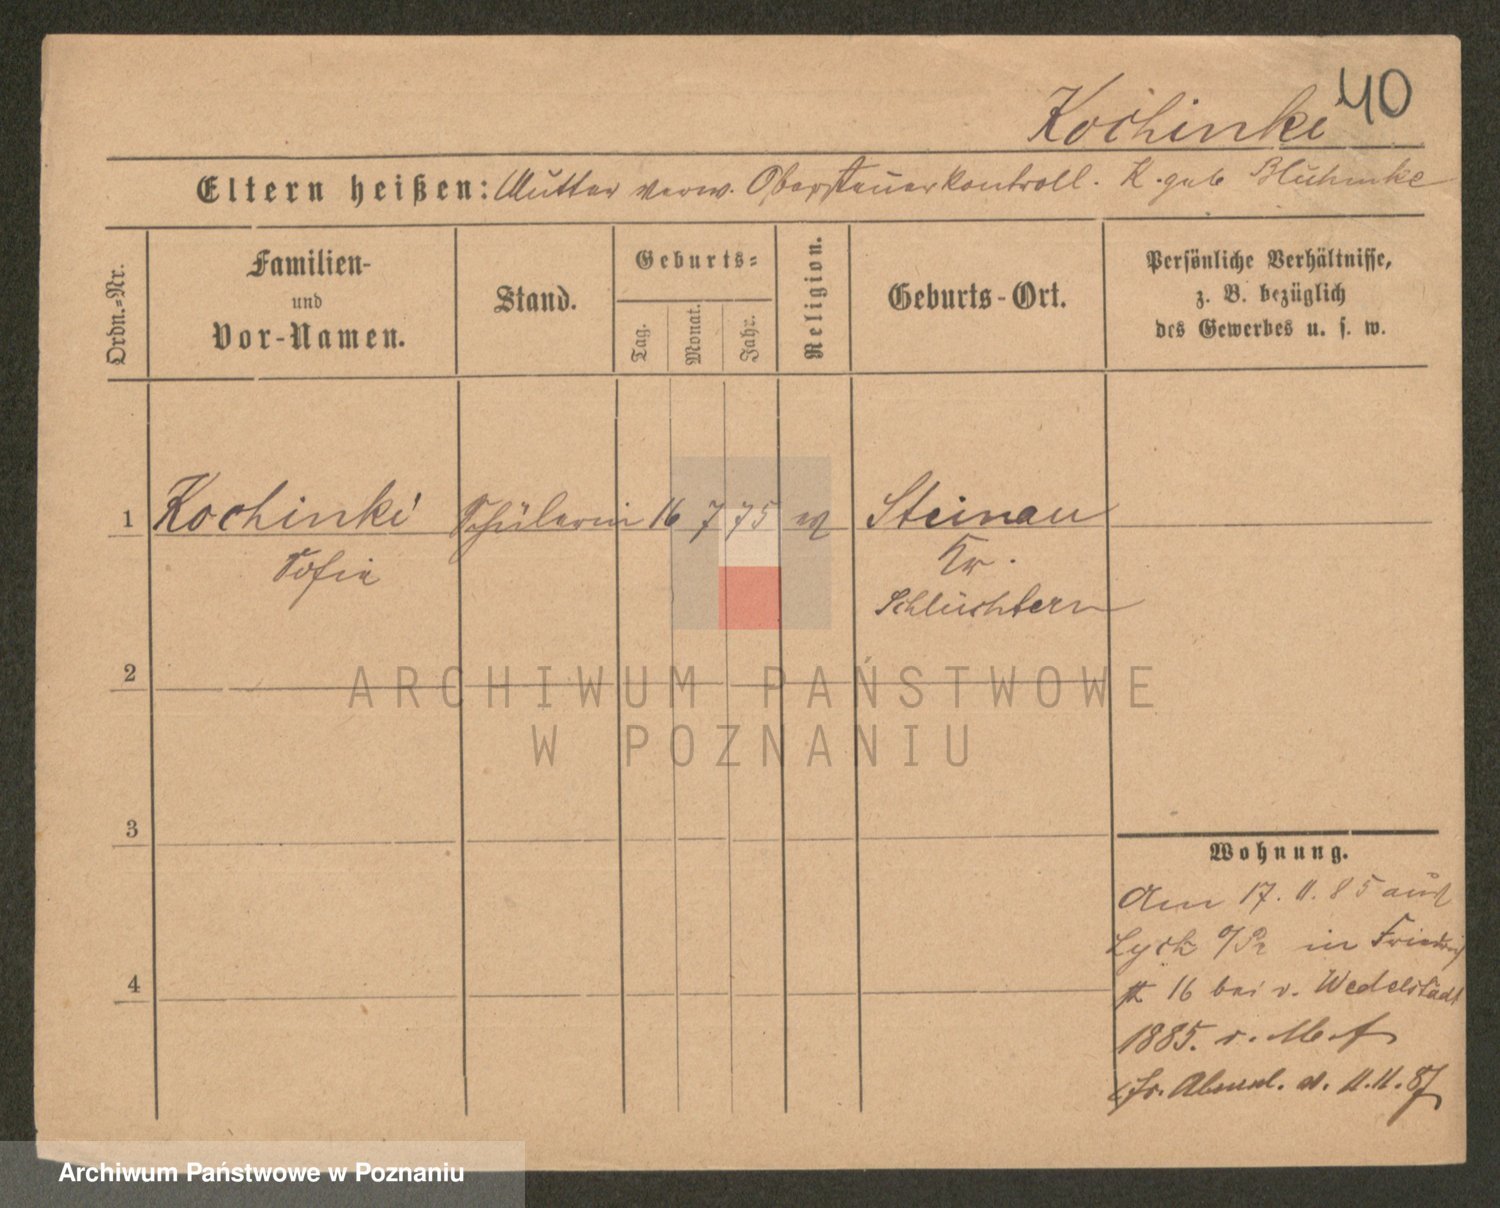 40
Kochinki
Eltern heißen: Mutter verw. Obersteuerkontroll. K. geb Bluhmke
Ordn.-Nr.
Familien-
und
Vor-Namen.
Stand.
Geburts-
Tag.
Monat.
Jahr.
Religion.
Geburts-Ort.
Persönliche Verhältnisse,
z. B. bezüglich
des Gewerbes u. s. w.
1 Kochinki Schülerin 16 7 75 Steinau
Sofie Kr.
Schlüchtern
2
3
4
Wohnung.
Am 17. 11. 85 aus
Lyck O/Pr in Friedrich
16 bei v. Wedelstädt
1885. v.
v. 11. 11. 87
ARCHIWUM PAŃSTWOWE
W POZNANIU
Archiwum Państwowe w Poznaniu